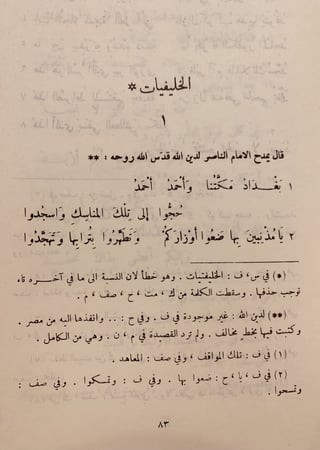 الخليفيات *
١
قال يمدح الامام الناصر لدين الله قدّس الله روحه : **
١ بَغْدَادُ مَكَّتُنَا وَأَحْمَدُ أَحْمَدُ
حُجُّوا إِلى تِلْكَ المَنَاسِكِ وَاسْجُدوا
٢ يَامُذْنِبِينَ بِهَا ضَعُوا أَوْزَارَكُمْ وَتَطَهَّرُوا بِتُرَابِهَا وَتَهَجَّدُوا
(*) في س ، ف : الخليفتيات . وهو خطأ لان النسبة الى ما في آخره تاء
توجب حذفها . وسقطت الكلمة من ك ، مت ، ح ، صف ، م .
(**) لدين الله : غير موجودة في ف . وفي ح : .. وانفذها اليه من مصر .
وكتبت فيها بخط مخالف . ولم ترد القصيدة في م ، ن . وهي من الكامل .
(١) في ف : تلك المواقف ، وفي صف : المعاهد .
(٢) في ف ، يا ، ح : ضعوا بها . وفي ف : وتمسكوا . وفي صف :
وتمسحوا .
٨٣